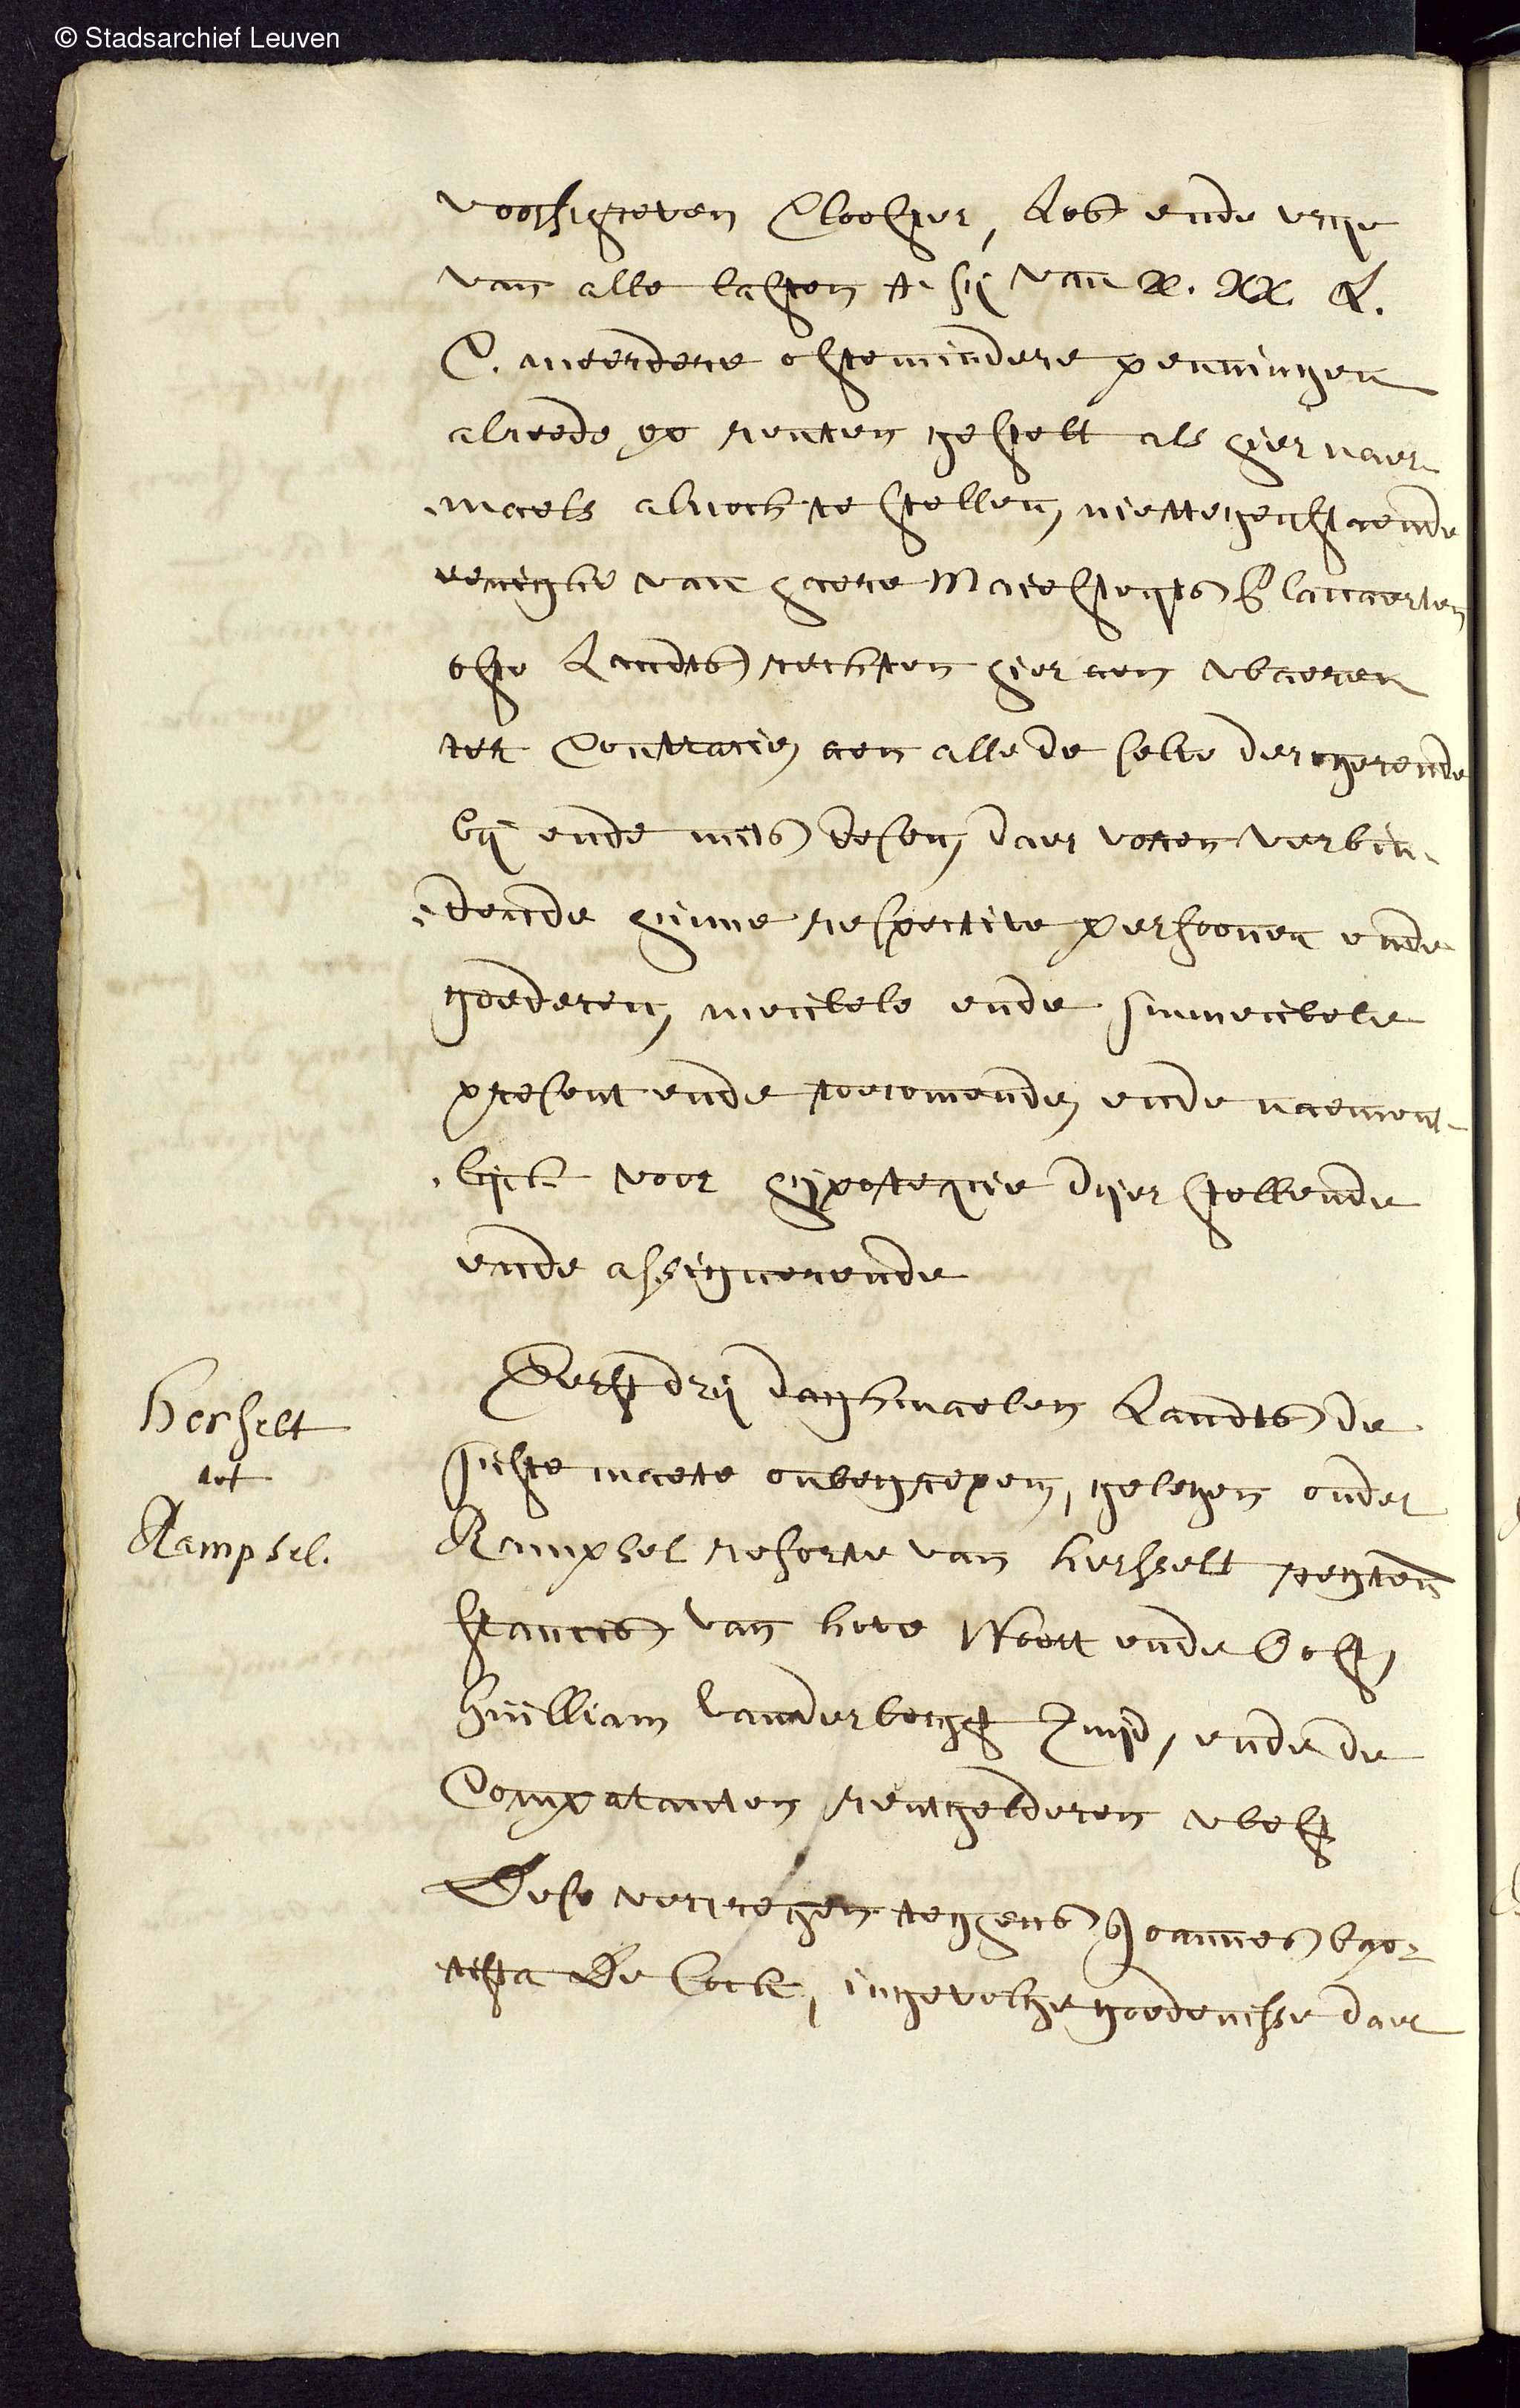 © Stadsarchief Leuven
voorschreven Clooster, Los ende vrye
van alle lasten t. sy van x. xx. L.
C. meerdere oft mindere penningen
alreede op renten gestelt als hier naer
maels alnoch te stellen, niettegenstaende
eenighe van haere Majesteyts placcaerten
ofte Landts rechten hier aen
ter Contrarie, aen alle de selve derogerende
by ende mits desen, daer voren verbin
dende hinne respective persoonen ende
goederen, meubele ende immeubele
present ende toecomende, ende naement
lyck voor hypotecque dyer stellende
ende assignerende
Eerst dry daghmaelen Landts de
juste maete onbegrepen, gelegen onder
Rampsel resorte van herselt regten
francis van hove Noort ende Oost,
Guilliam vanderborght Zuyd, ende de
Comparanten rentgelderen West
Dese vercregen teghens Joannes bap
tista De Cock, ingevolge goedenisse daer
herselt
tot
Rampsel.